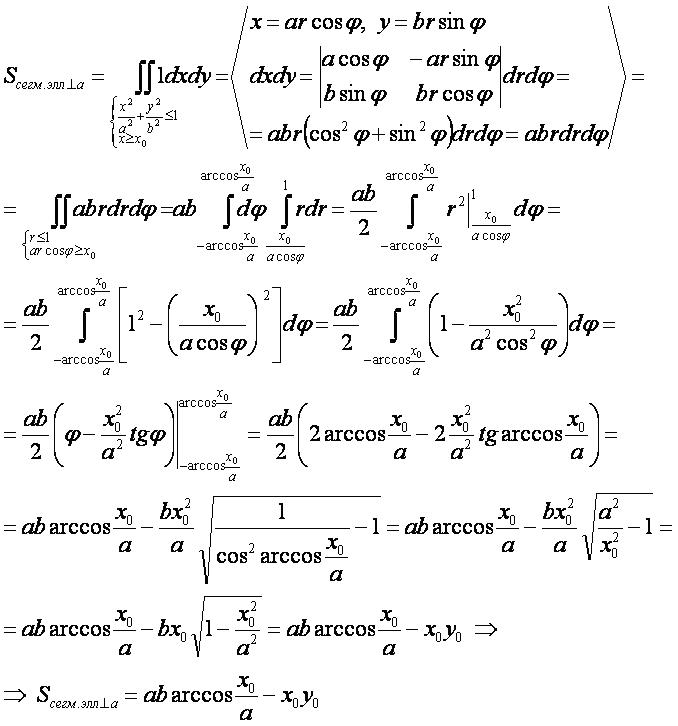 S_{сегм.элл⊥a} = ∬_{\begin{cases} \frac{x^2}{a^2}+\frac{y^2}{b^2} ≤ 1 \\ x ≥ x_0 \end{cases}} 1dxdy = ⟨ x = ar cos φ, y = br sin φ
dxdy = \begin{vmatrix} a cos φ & -ar sin φ \\ b sin φ & br cos φ \end{vmatrix} drdφ =
= abr(cos² φ + sin² φ)drdφ = abrdrdφ ⟩ =
= ∬_{\begin{cases} r ≤ 1 \\ ar cos φ ≥ x_0 \end{cases}} abrdrdφ = ab ∫_{-arccos\frac{x_0}{a}}^{arccos\frac{x_0}{a}} dφ ∫_{\frac{x_0}{a cos φ}}^{1} rdr = \frac{ab}{2} ∫_{-arccos\frac{x_0}{a}}^{arccos\frac{x_0}{a}} r²|_{\frac{x_0}{a cos φ}}^{1} dφ =
= \frac{ab}{2} ∫_{-arccos\frac{x_0}{a}}^{arccos\frac{x_0}{a}} [1² - (\frac{x_0}{a cos φ})²] dφ = \frac{ab}{2} ∫_{-arccos\frac{x_0}{a}}^{arccos\frac{x_0}{a}} (1 - \frac{x_0^2}{a² cos² φ}) dφ =
= \frac{ab}{2} (φ - \frac{x_0^2}{a²} tgφ)|_{-arccos\frac{x_0}{a}}^{arccos\frac{x_0}{a}} = \frac{ab}{2} (2 arccos \frac{x_0}{a} - 2 \frac{x_0^2}{a²} tg arccos \frac{x_0}{a}) =
= ab arccos \frac{x_0}{a} - \frac{bx_0^2}{a} \sqrt{\frac{1}{cos² arccos \frac{x_0}{a}} - 1} = ab arccos \frac{x_0}{a} - \frac{bx_0^2}{a} \sqrt{\frac{a²}{x_0^2} - 1} =
= ab arccos \frac{x_0}{a} - bx_0 \sqrt{1 - \frac{x_0^2}{a²}} = ab arccos \frac{x_0}{a} - x_0 y_0 ⇒
⇒ S_{сегм.элл⊥a} = ab arccos \frac{x_0}{a} - x_0 y_0